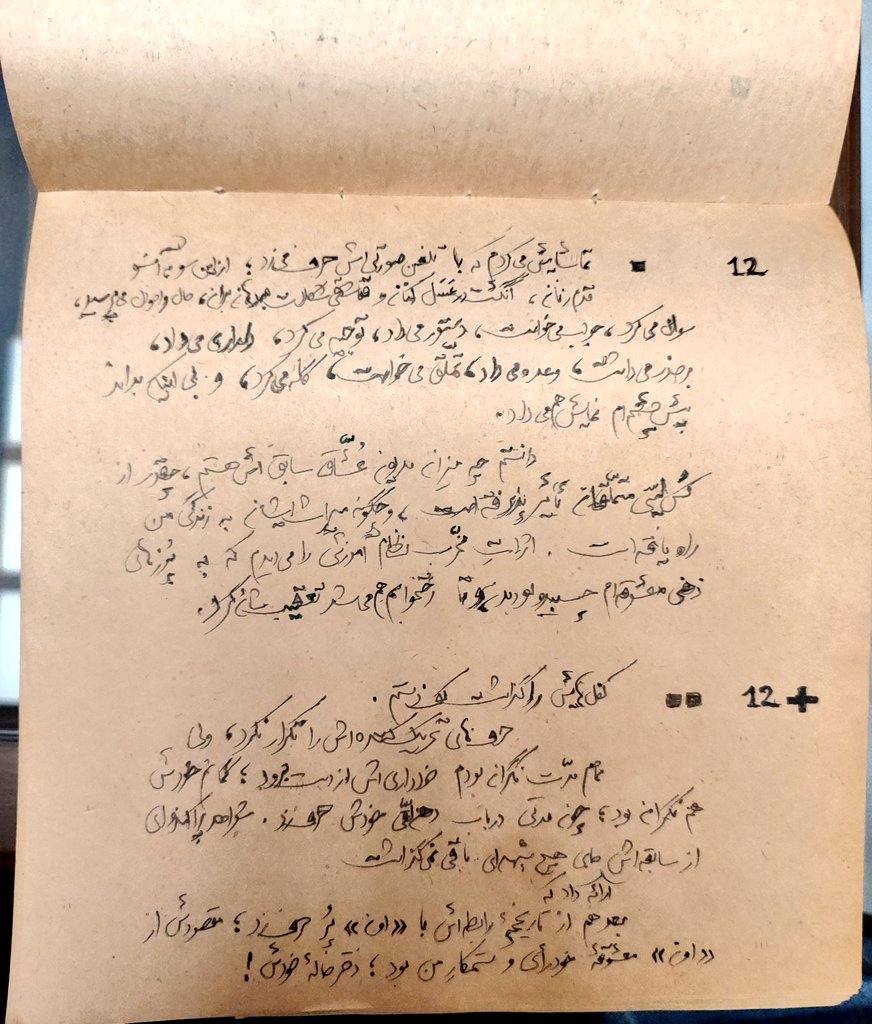 12 ■ تماشایش می‌کردم که با تلفن صورتی‌اش حرف می‌زد؛ از این سو به آنسو
قدم زنان، انگشت در عسل کنان و حال و احوال می‌پرسید،
سوال می‌کرد، جواب می‌خواست، دستور می‌داد، توجیه می‌کرد، دلداری می‌داد،
بر حذر می‌داشت، وعده می‌داد، تملّق می‌خواست، گله می‌کرد، و بی آنکه بداند
پیش چشم‌ام نمایش هم می‌داد.
دانستم چه میزان مدیون عُشّاق سابق‌اش هستم، چقدر از
متملّقان تأثیر پذیرفته است، و چگونه میراث ایشان به زندگی من
راه یافته است. اثراتِ مخرّب نظام آموزشی را می‌دیدم که به پُرزهای
ذهنی معشوقه‌ام چسبیده بودند و تا رختخوابم هم می‌شد تعقیب‌شان کرد.
+ 12 ■■ کفل‌هایش را گذاشت لب
حرف‌های تحریک کننده‌اش را تکرار نکرد، ولی
تمام مدّت نگران بودم خودداری‌اش از دست برود؛ خودش
هم نگران بود؛ چون مدتی در باب خودش حرف زد. شواهد پراکنده‌ای
از سابقه‌اش جای هیچ شبهه‌ای باقی نمی‌گذاشت
ارائه داد که
بعد هم از تاریخچهٔ رابطه‌اش با «اون» پُر حرف زد؛ مقصودش از
«اون» معشوقهٔ خودرأی و ستمکارِ من بود؛ دخترخالهٔ خودش!